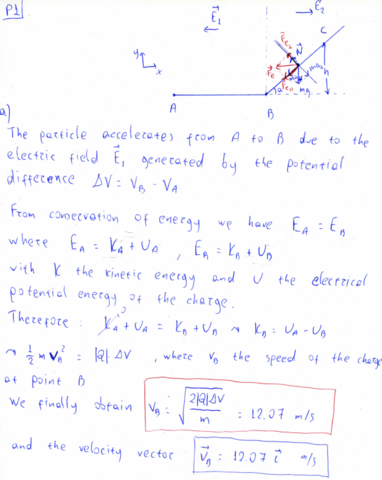 P1
E⃗₁
E⃗₂
y
x
A
B
C
N⃗
a)
The particle accelerates from A to B due to the
electric field E⃗₁ generated by the potential
difference ΔV = V_B - V_A
From conservation of energy we have E_A = E_B
where E_A = K_A + U_A , E_B = K_B + U_B
with K the kinetic energy and U the electrical
potential energy of the charge.
Therefore : K_A + U_A = K_B + U_B ⇝ K_B = U_A - U_B
⇝ ½ m v_B² = |q| ΔV , where v_B the speed of the charge
at point B
We finally obtain v_B = √(2|q|ΔV/m) = 12.07 m/s
and the velocity vector v⃗_B = 12.07 i⃗ m/s